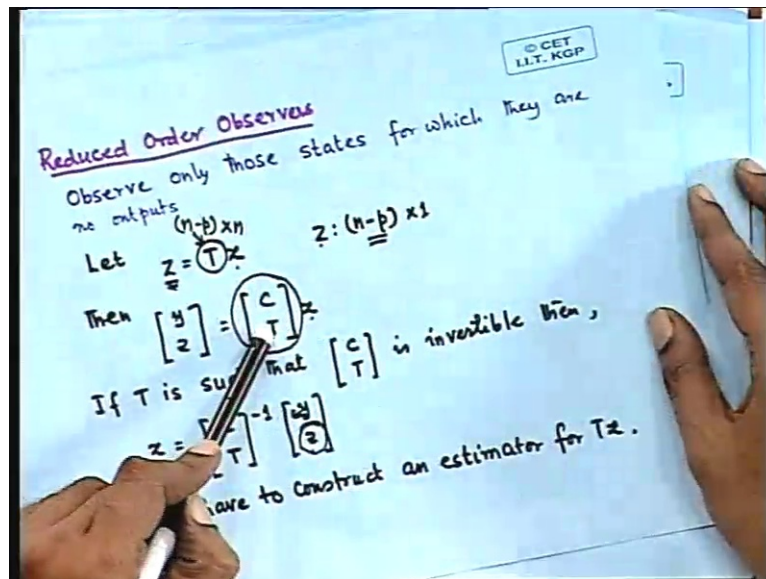 © CET
I.I.T. KGP
Reduced Order Observers
Observe only those states for which they are
no outputs
(n-p)×n
Let z = T x z : (n-p) × 1
Then [ y z ] = [ C T ] x
If T is such that [ C T ] is invertible then,
x = [ T ]⁻¹ [ y z ]
have to construct an estimator for Tx.